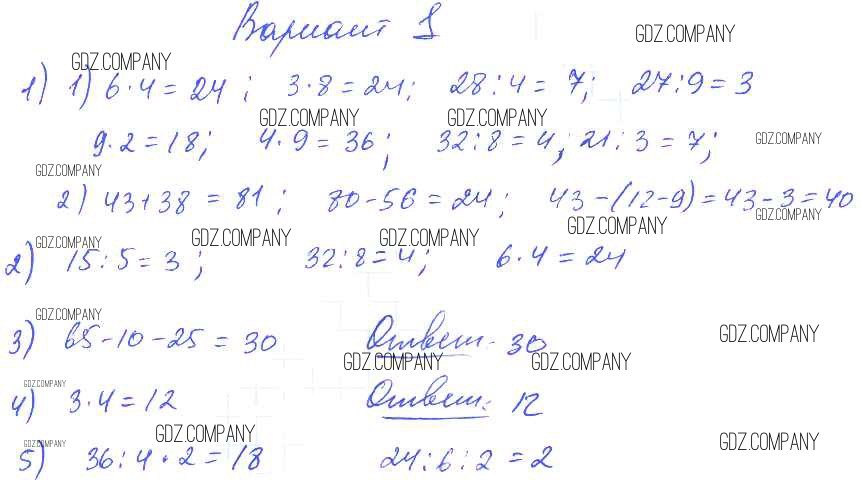 Вариант 1
GDZ.COMPANY
GDZ.COMPANY
1) 1) 6·4=24; 3·8=24; 28:4=7; 27:9=3
GDZ.COMPANY GDZ.COMPANY
9·2=18; 4·9=36; 32:8=4; 21:3=7;
GDZ.COMPANY
GDZ.COMPANY
2) 43+38=81; 80-56=24; 43-(12-9)=43-3=40
GDZ.COMPANY
GDZ.COMPANY
GDZ.COMPANY GDZ.COMPANY GDZ.COMPANY
2) 15:5=3; 32:8=4; 6·4=24
GDZ.COMPANY
GDZ.COMPANY
3) 65-10-25=30 Ответ: 30
GDZ.COMPANY GDZ.COMPANY
GDZ.COMPANY
4) 3·4=12 Ответ: 12
GDZ.COMPANY
GDZ.COMPANY GDZ.COMPANY
5) 36:4·2=18 24:6:2=2